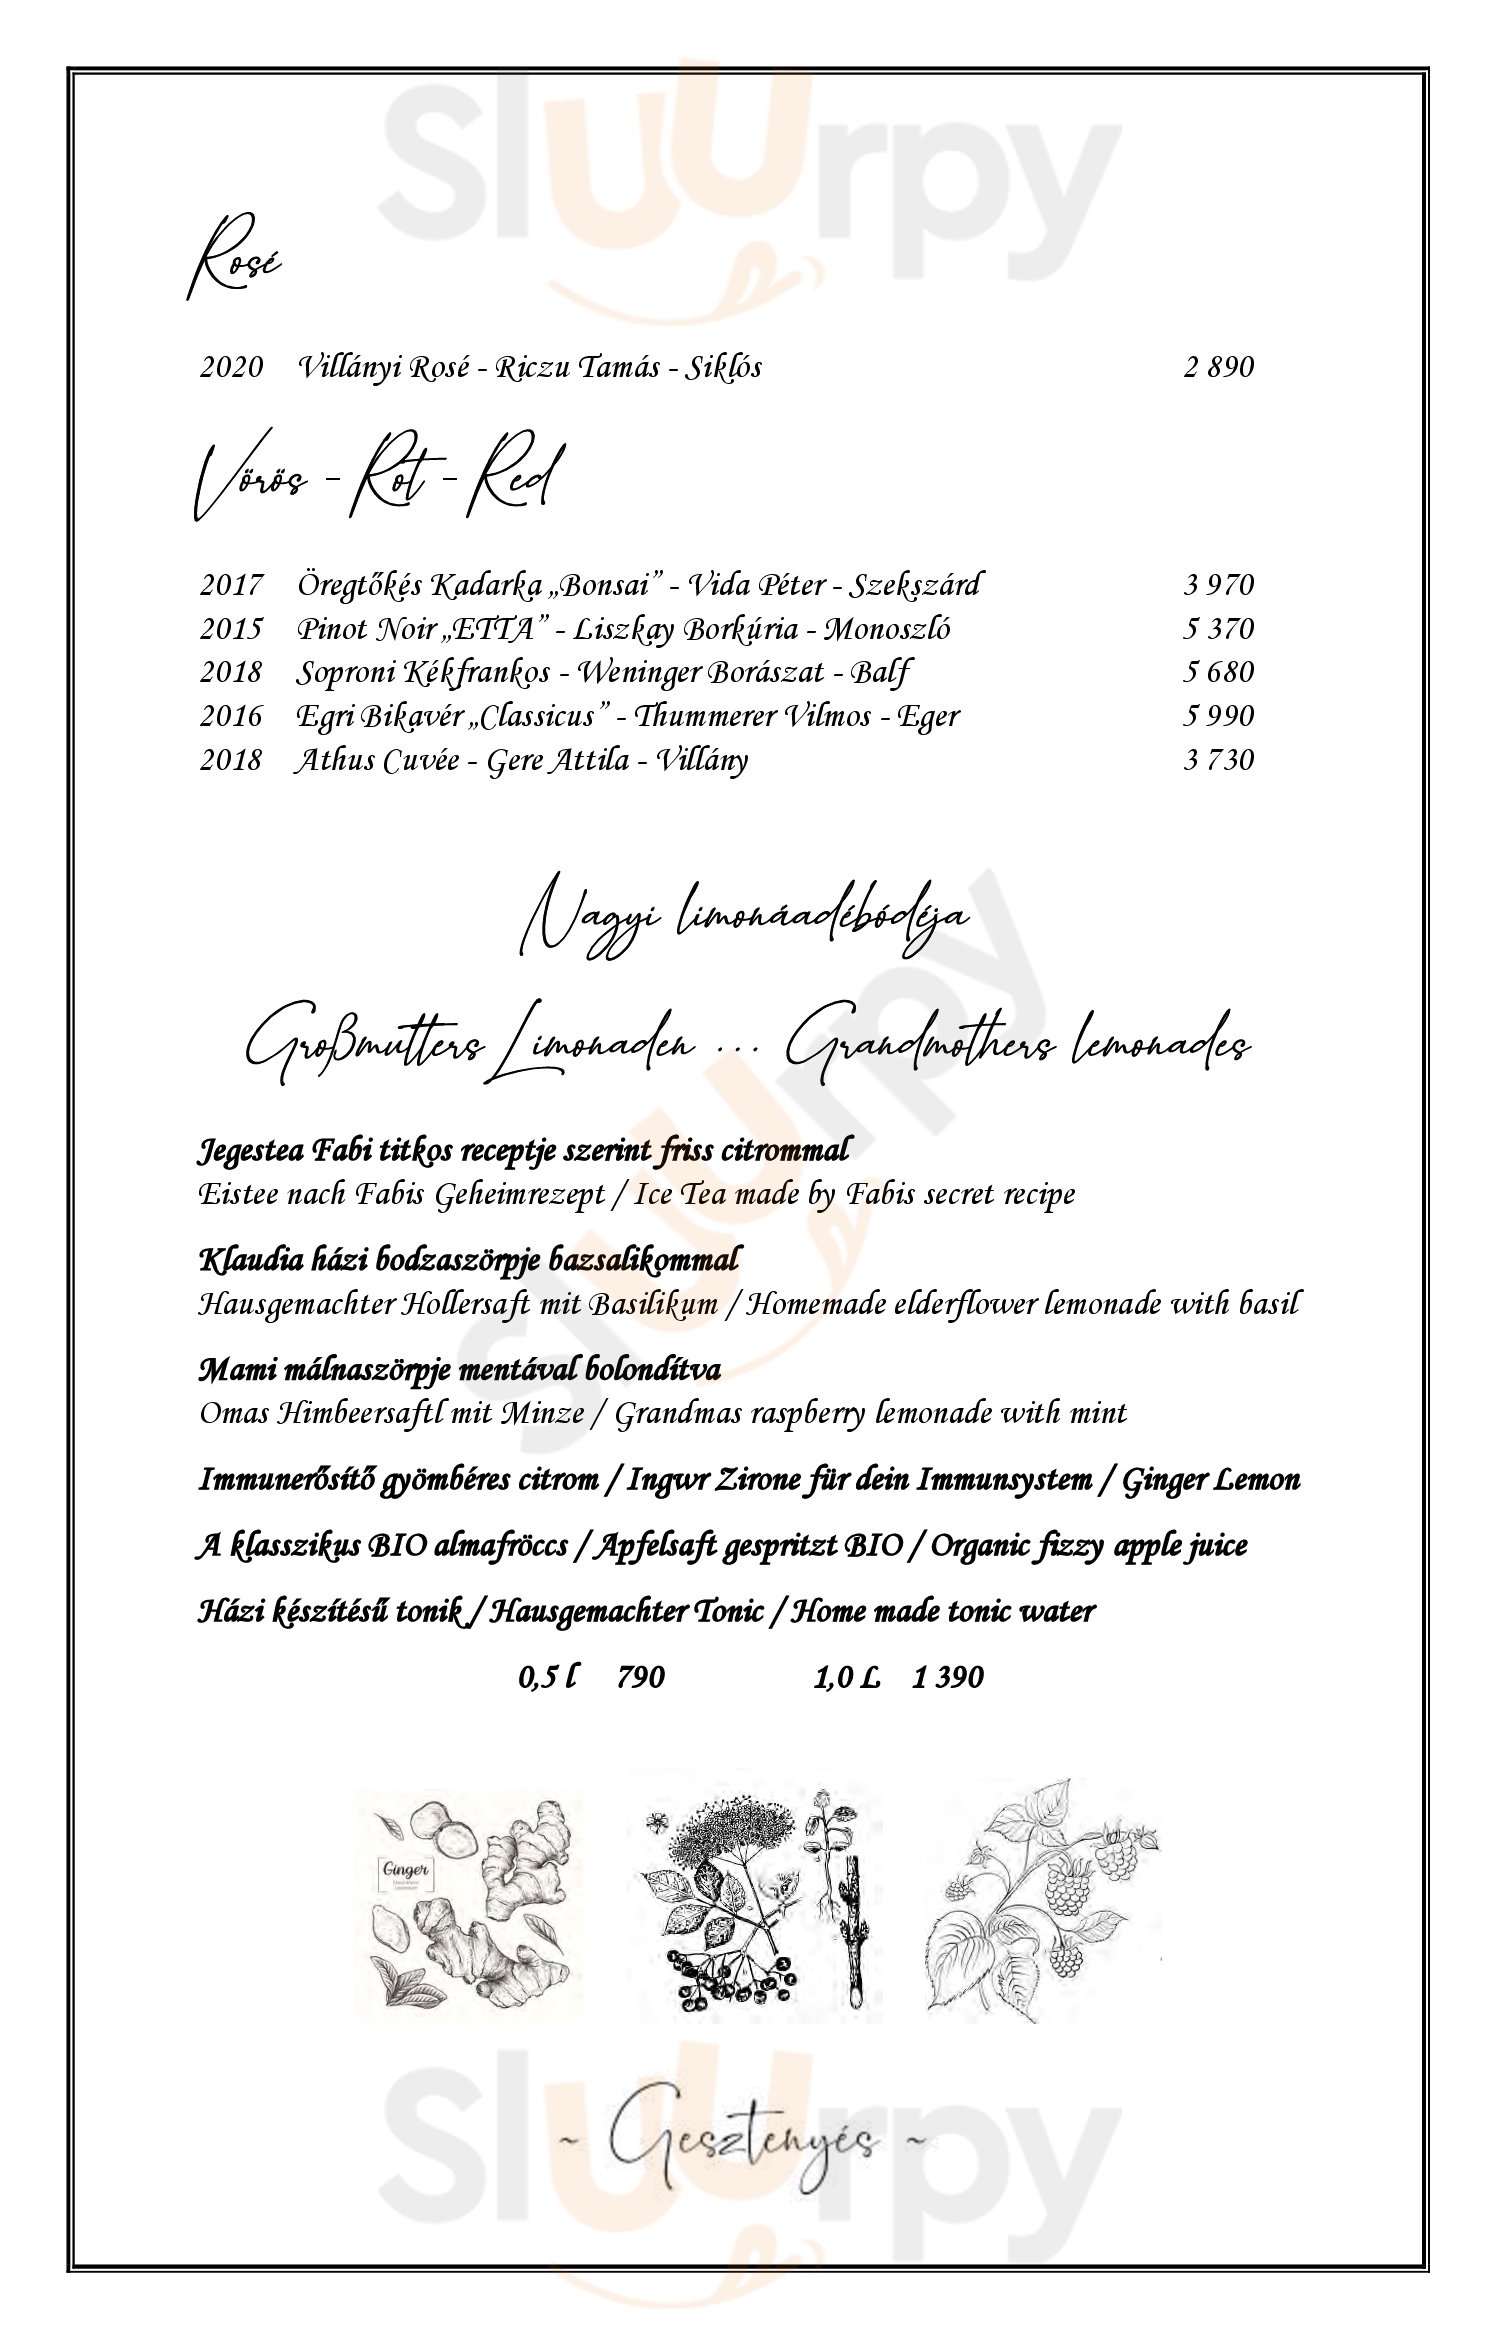 Sluurpy
Rosé
2020 Villányi Rosé - Riczu Tamás - Siklós 2 890
Vörös - Rot - Red
2017 Öregtőkés Kadarka „Bonsai” - Vida Péter - Szekszárd 3 970
2015 Pinot Noir „ETTA” - Liszkay Borkúria - Monoszló 5 370
2018 Soproni Kékfrankos - Weninger Borászat - Balf 5 680
2016 Egri Bikavér „Classicus” - Thummerer Vilmos - Eger 5 990
2018 Athus Cuvée - Gere Attila - Villány 3 730
Nagyi limonáadébódéja
Großmutters Limonaden ... Grandmothers lemonades
Sluurpy
Jegestea Fabi titkos receptje szerint friss citrommal
Eistee nach Fabis Geheimrezept / Ice Tea made by Fabis secret recipe
Klaudia házi bodzaszörpje bazsalikommal
Hausgemachter Hollersaft mit Basilikum / Homemade elderflower lemonade with basil
Mami málnaszörpje mentával bolondítva
Omas Himbeersaftl mit Minze / Grandmas raspberry lemonade with mint
Immunerősítő gyömbéres citrom / Ingwr Zirone für dein Immunsystem / Ginger Lemon
A klasszikus BIO almafröccs / Apfelsaft gespritzt BIO / Organic fizzy apple juice
Házi készítésű tonik / Hausgemachter Tonic / Home made tonic water
0,5 l 790 1,0 L 1 390
Ginger
~ Gesztenyés ~
Sluurpy